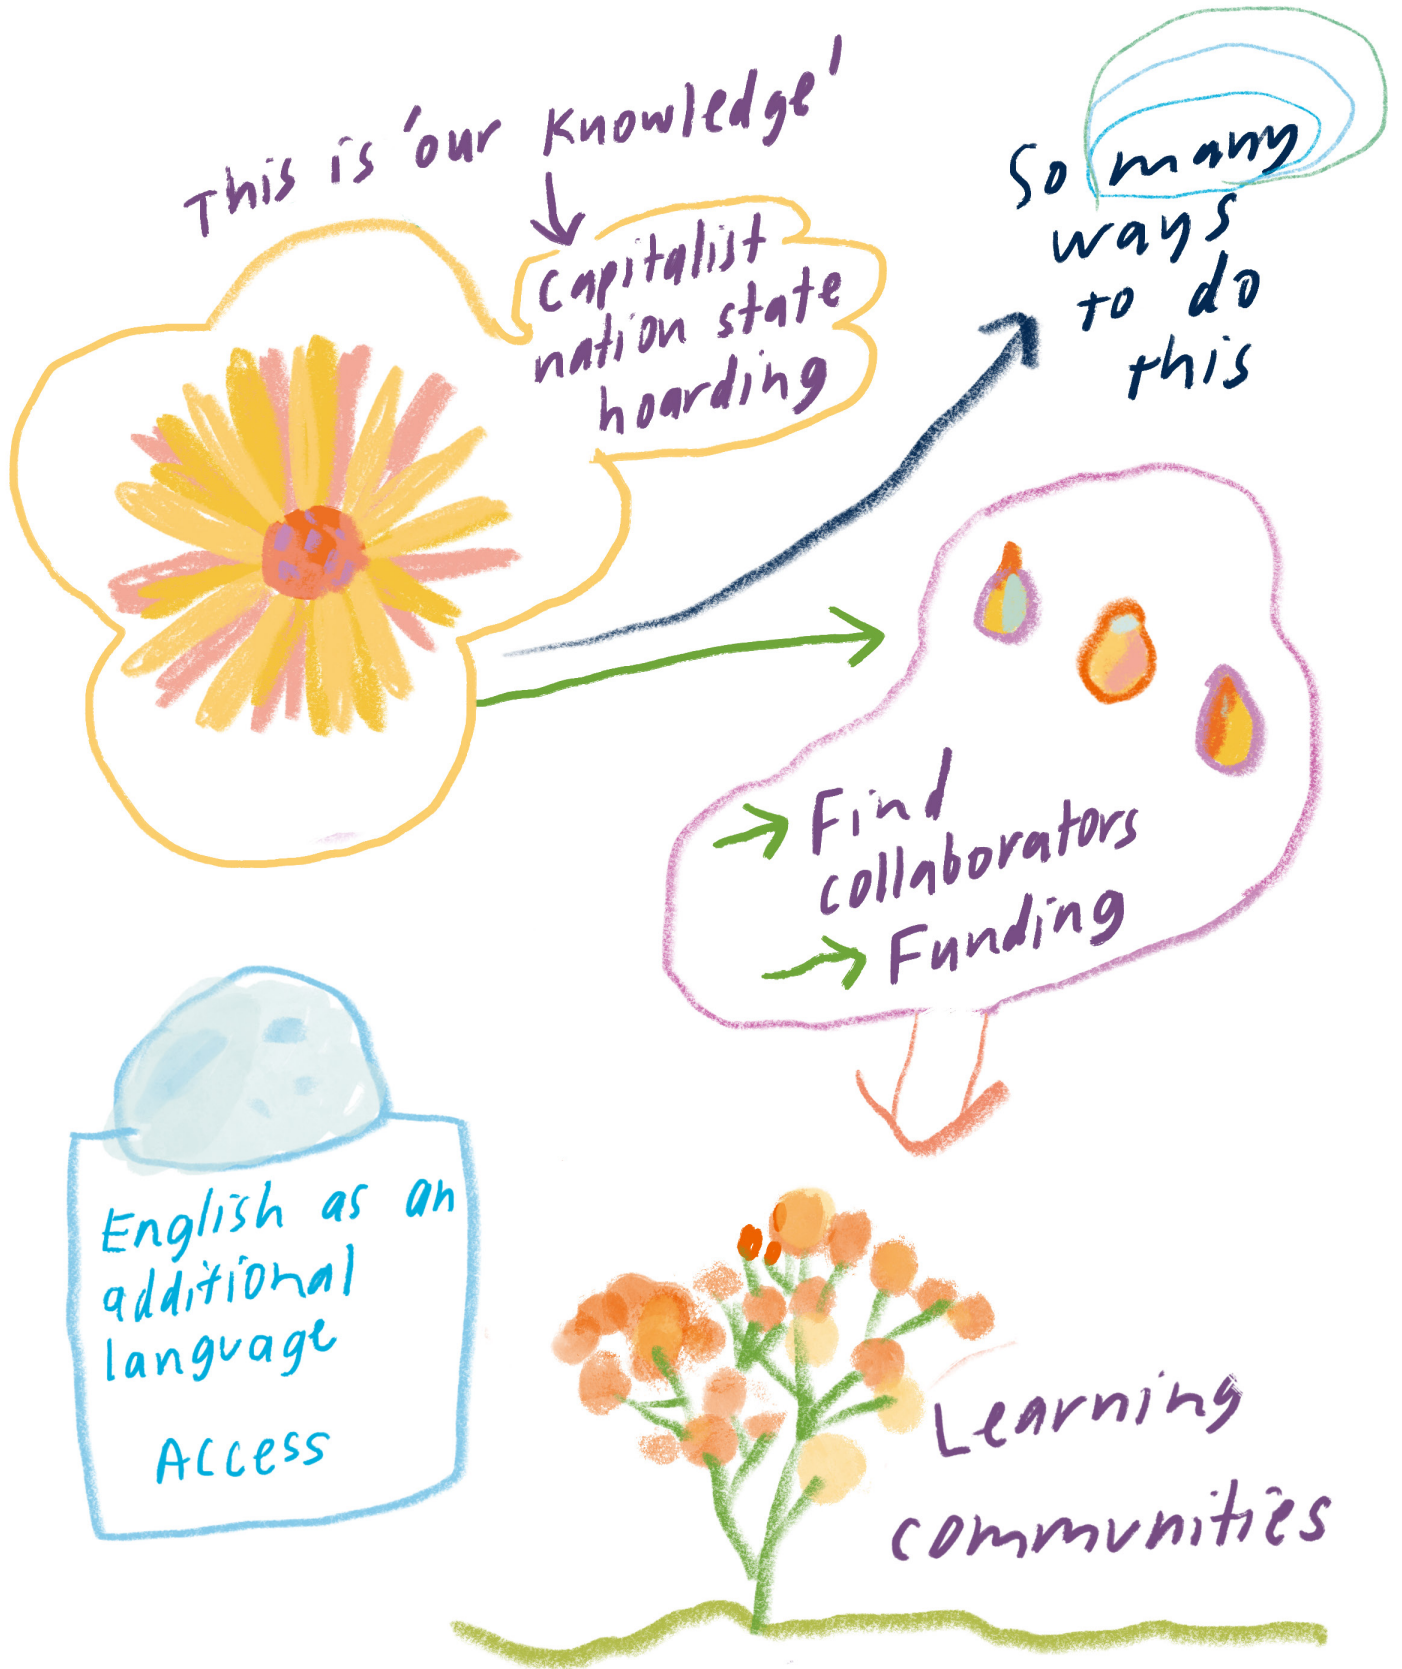 This is 'our Knowledge'
Capitalist
nation state
hoarding
So many
ways
to do
this
Find
collaborators
Funding
English as an
additional
language
Access
Learning
communities